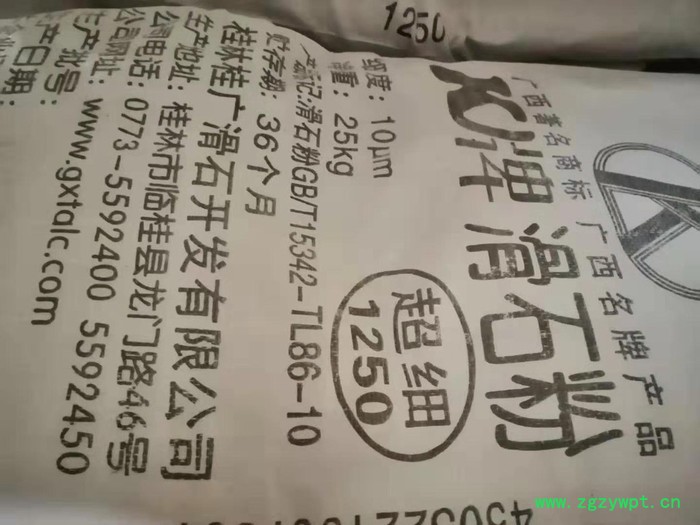 1250
广西著名商标 广西名牌产品
牌滑石粉
超细
1250
细度：10μm
重：25kg
产品标记：滑石粉GB/T15342-TL86-10
贮存期：36个月
桂林桂广滑石开发有限公司
生产地址：桂林市临桂县龙门路46号
公司电话：0773-5592400 5592450
公司网址：www.gxtalc.com
生产批号：
产日期：
www.zgzywpt.cn